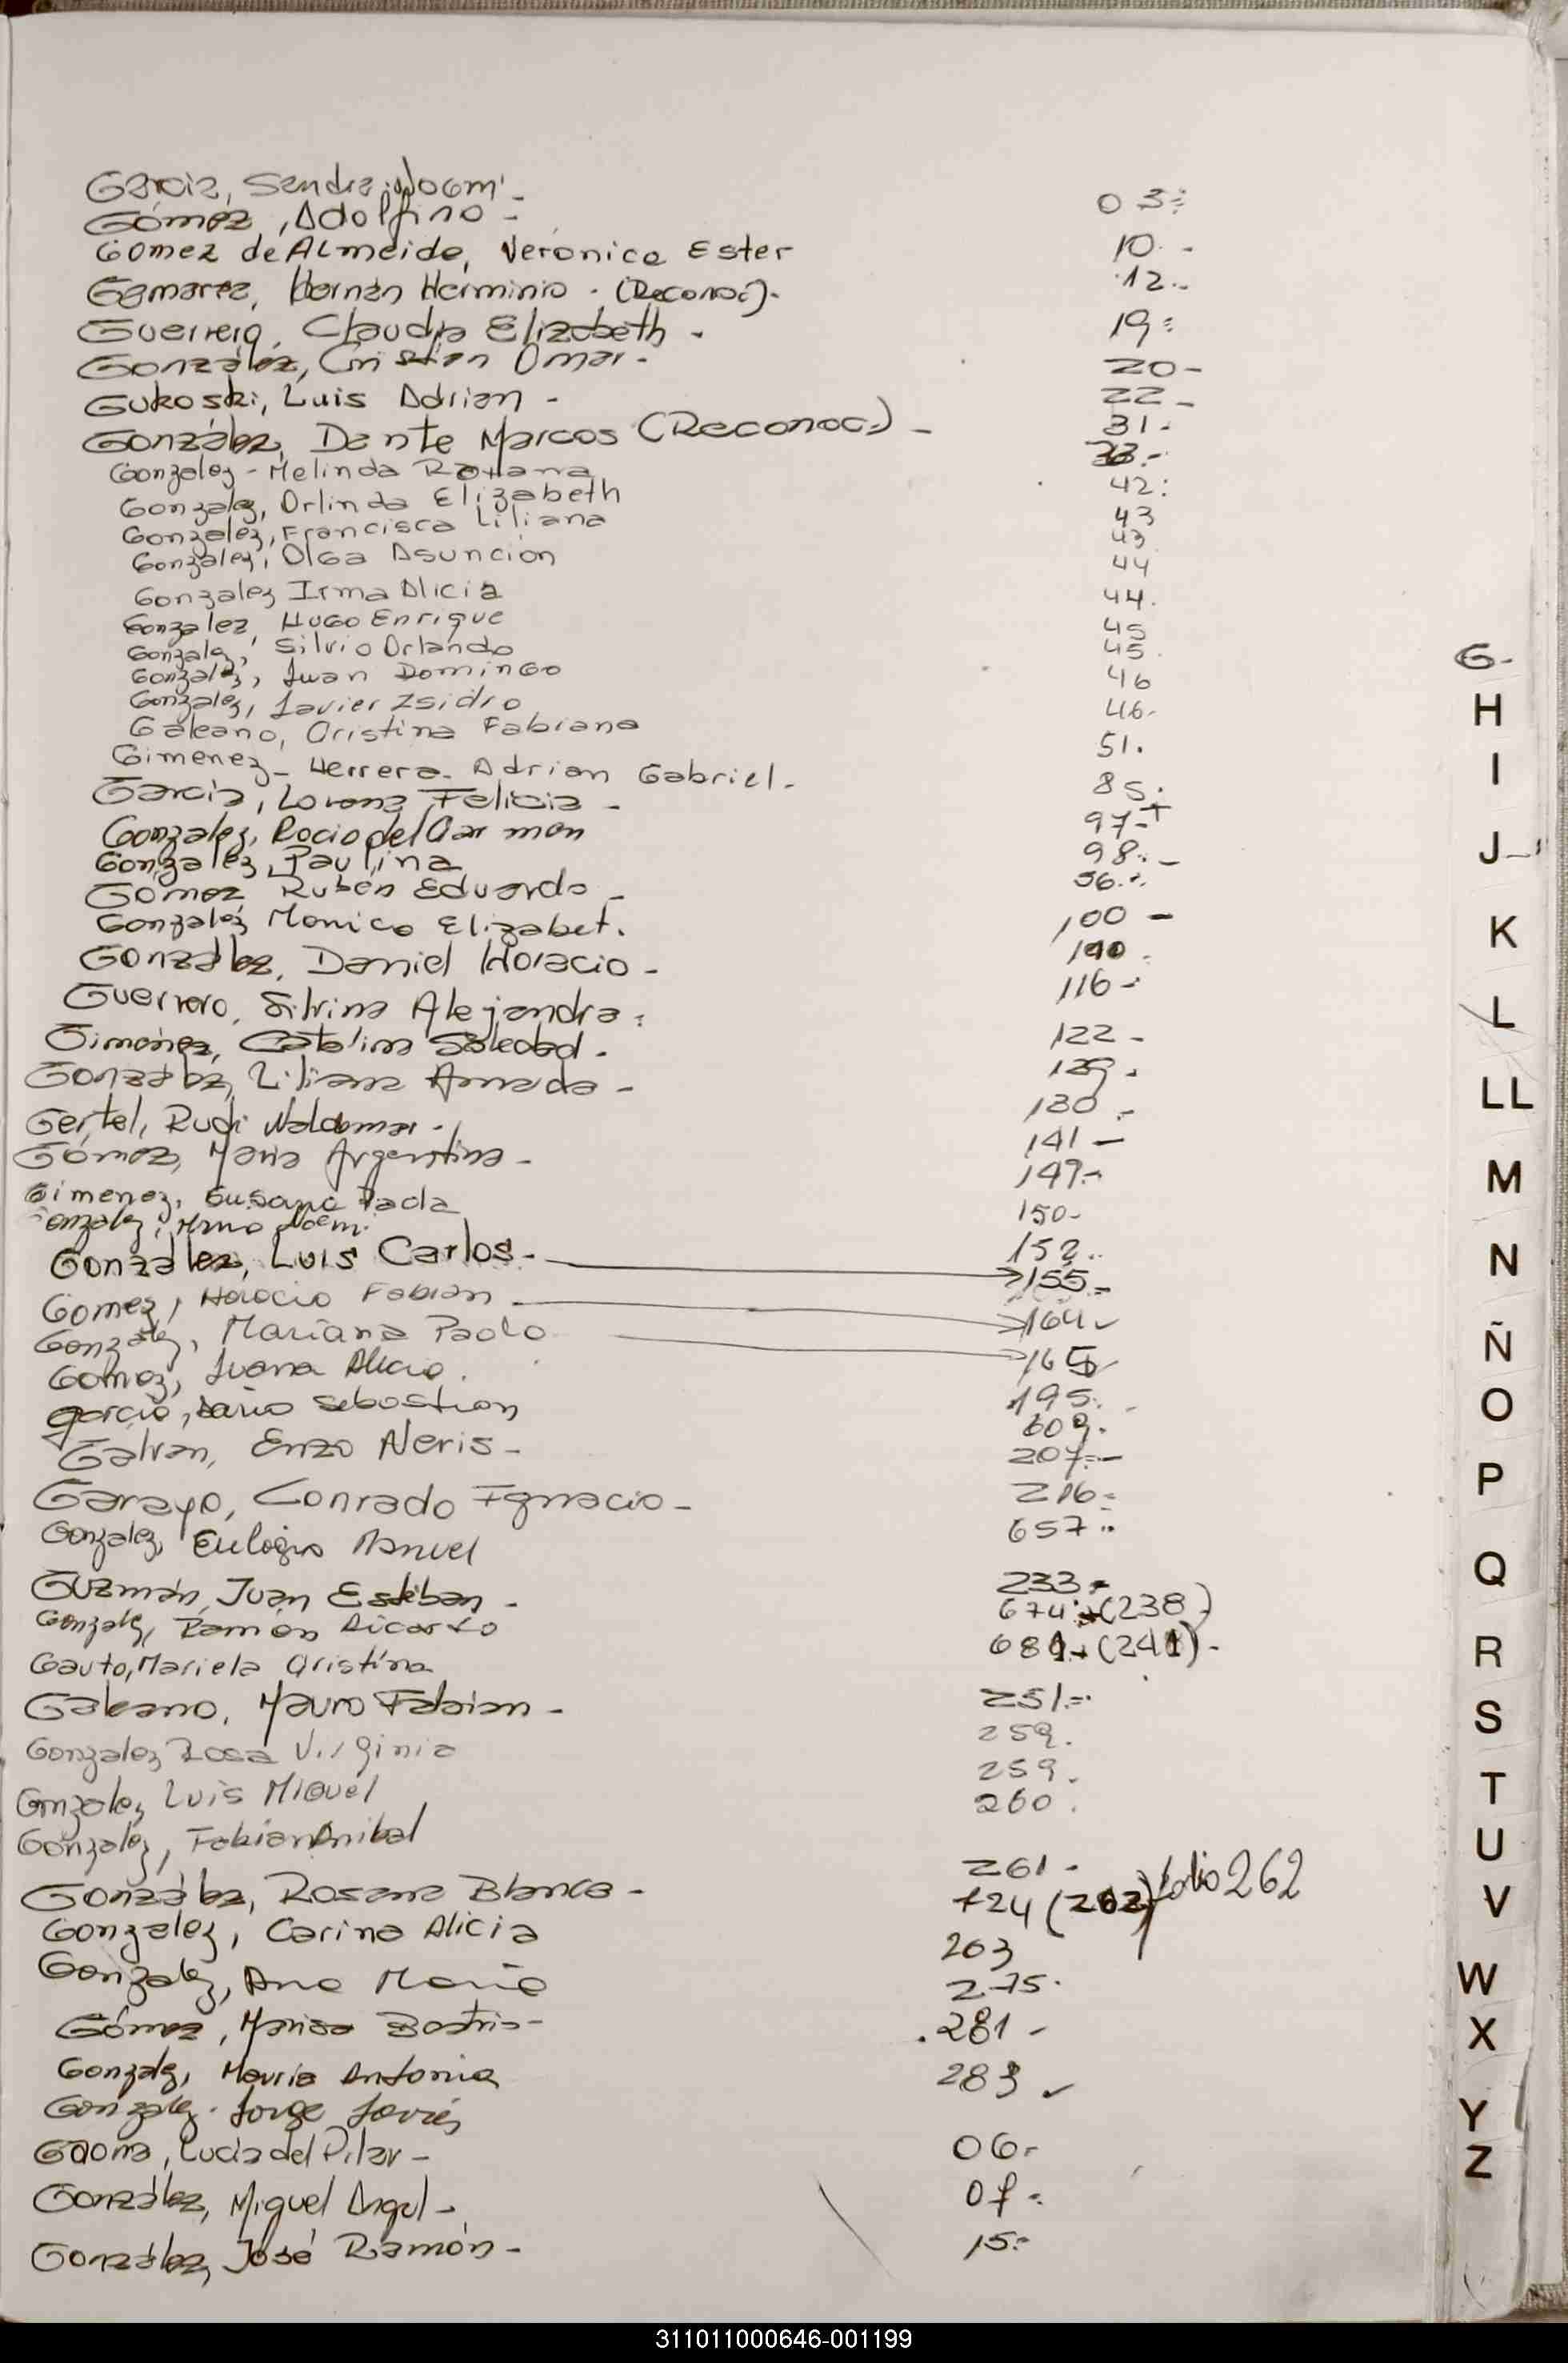 Garcia, Sandra Noemi - 03
Gómez, Adolfino - 10. -
Gomez de Almeida, Veronica Ester 12..
Gamarra, Hernán Herminio. (Reconoc). 19
Guerrero, Claudia Elizabeth. 20-
González, Cristian Omar. 22-
Gukoski, Luis Adrian - 31.
González, Dante Marcos (Reconoc.) - 33.-
Gonzalez - Melinda Roxana 42:
Gonzalez, Orlinda Elizabeth 43
Gonzalez, Francisca Liliana 43
Gonzalez, Olga Asunción 44
Gonzalez Irma Alicia 44.
Gonzalez, Hugo Enrique 45
Gonzalez, Silvio Orlando 45
Gonzalez, Juan Domingo 46
Gonzalez, Javier Isidro 46-
Galeano, Cristina Fabiana 51.
Gimenez - Herrera - Adrian Gabriel. 85.
Garcia, Lorena Felicia - 97-
Gonzalez, Rocio del Carmen 98.-
Gonzalez, Paulina 56..
Gómez Rubén Eduardo - 100 -
Gonzalez Monica Elizabet. 100
González, Daniel Horacio - 116-
Guerrero, Silvina Alejandra. 122 -
Giménez, Catalina Soledad. 129.
González, Liliana Amada - 130
Gertel, Rudi Waldemar. 141 -
Gómez, Maria Argentina - 147.-
Gimenez, Susana Paola 150-
Gonzalez, Noemi 152..
González, Luis Carlos. - 155.-
Gomez, Horacio Fabian 164
Gonzalez, Mariana Paola 165
Gomez, Juana Alicia. 195.
garcia, Dario Sebastian 609.
Galvan, Enzo Neris - 207.-
Garayo, Conrado Ignacio - 216=
Gonzalez, Eulogio Manuel 657..
Guzmán, Juan Esteban - 233.
Gonzalez, Ramón Ricardo 674. (238)
Gauto, Mariela Cristina 681. (241).
Galeano, Mauro Fabian - 251.=
Gonzalez Rosa Virginia 259.
Gonzalez Luis Miguel 259.
Gonzalez, Fabian Anibal 260.
González, Rosana Blanca - 261-
Gonzalez, Carina Alicia 724 (262) folio 262
Gonzalez, Ana Maria 263
Gómez, Marisa Beatris - 275.
Gonzalez, Maria Antonia .281-
Gonzalez. Jorge Javier 283
Gaona, Lucia del Pilar - 06-
González, Miguel Angel - 07-
González, José Ramón - 15
G.
H
I
J
K
L
LL
M
N
Ñ
O
P
Q
R
S
T
U
V
W
X
Y
Z
311011000646-001199